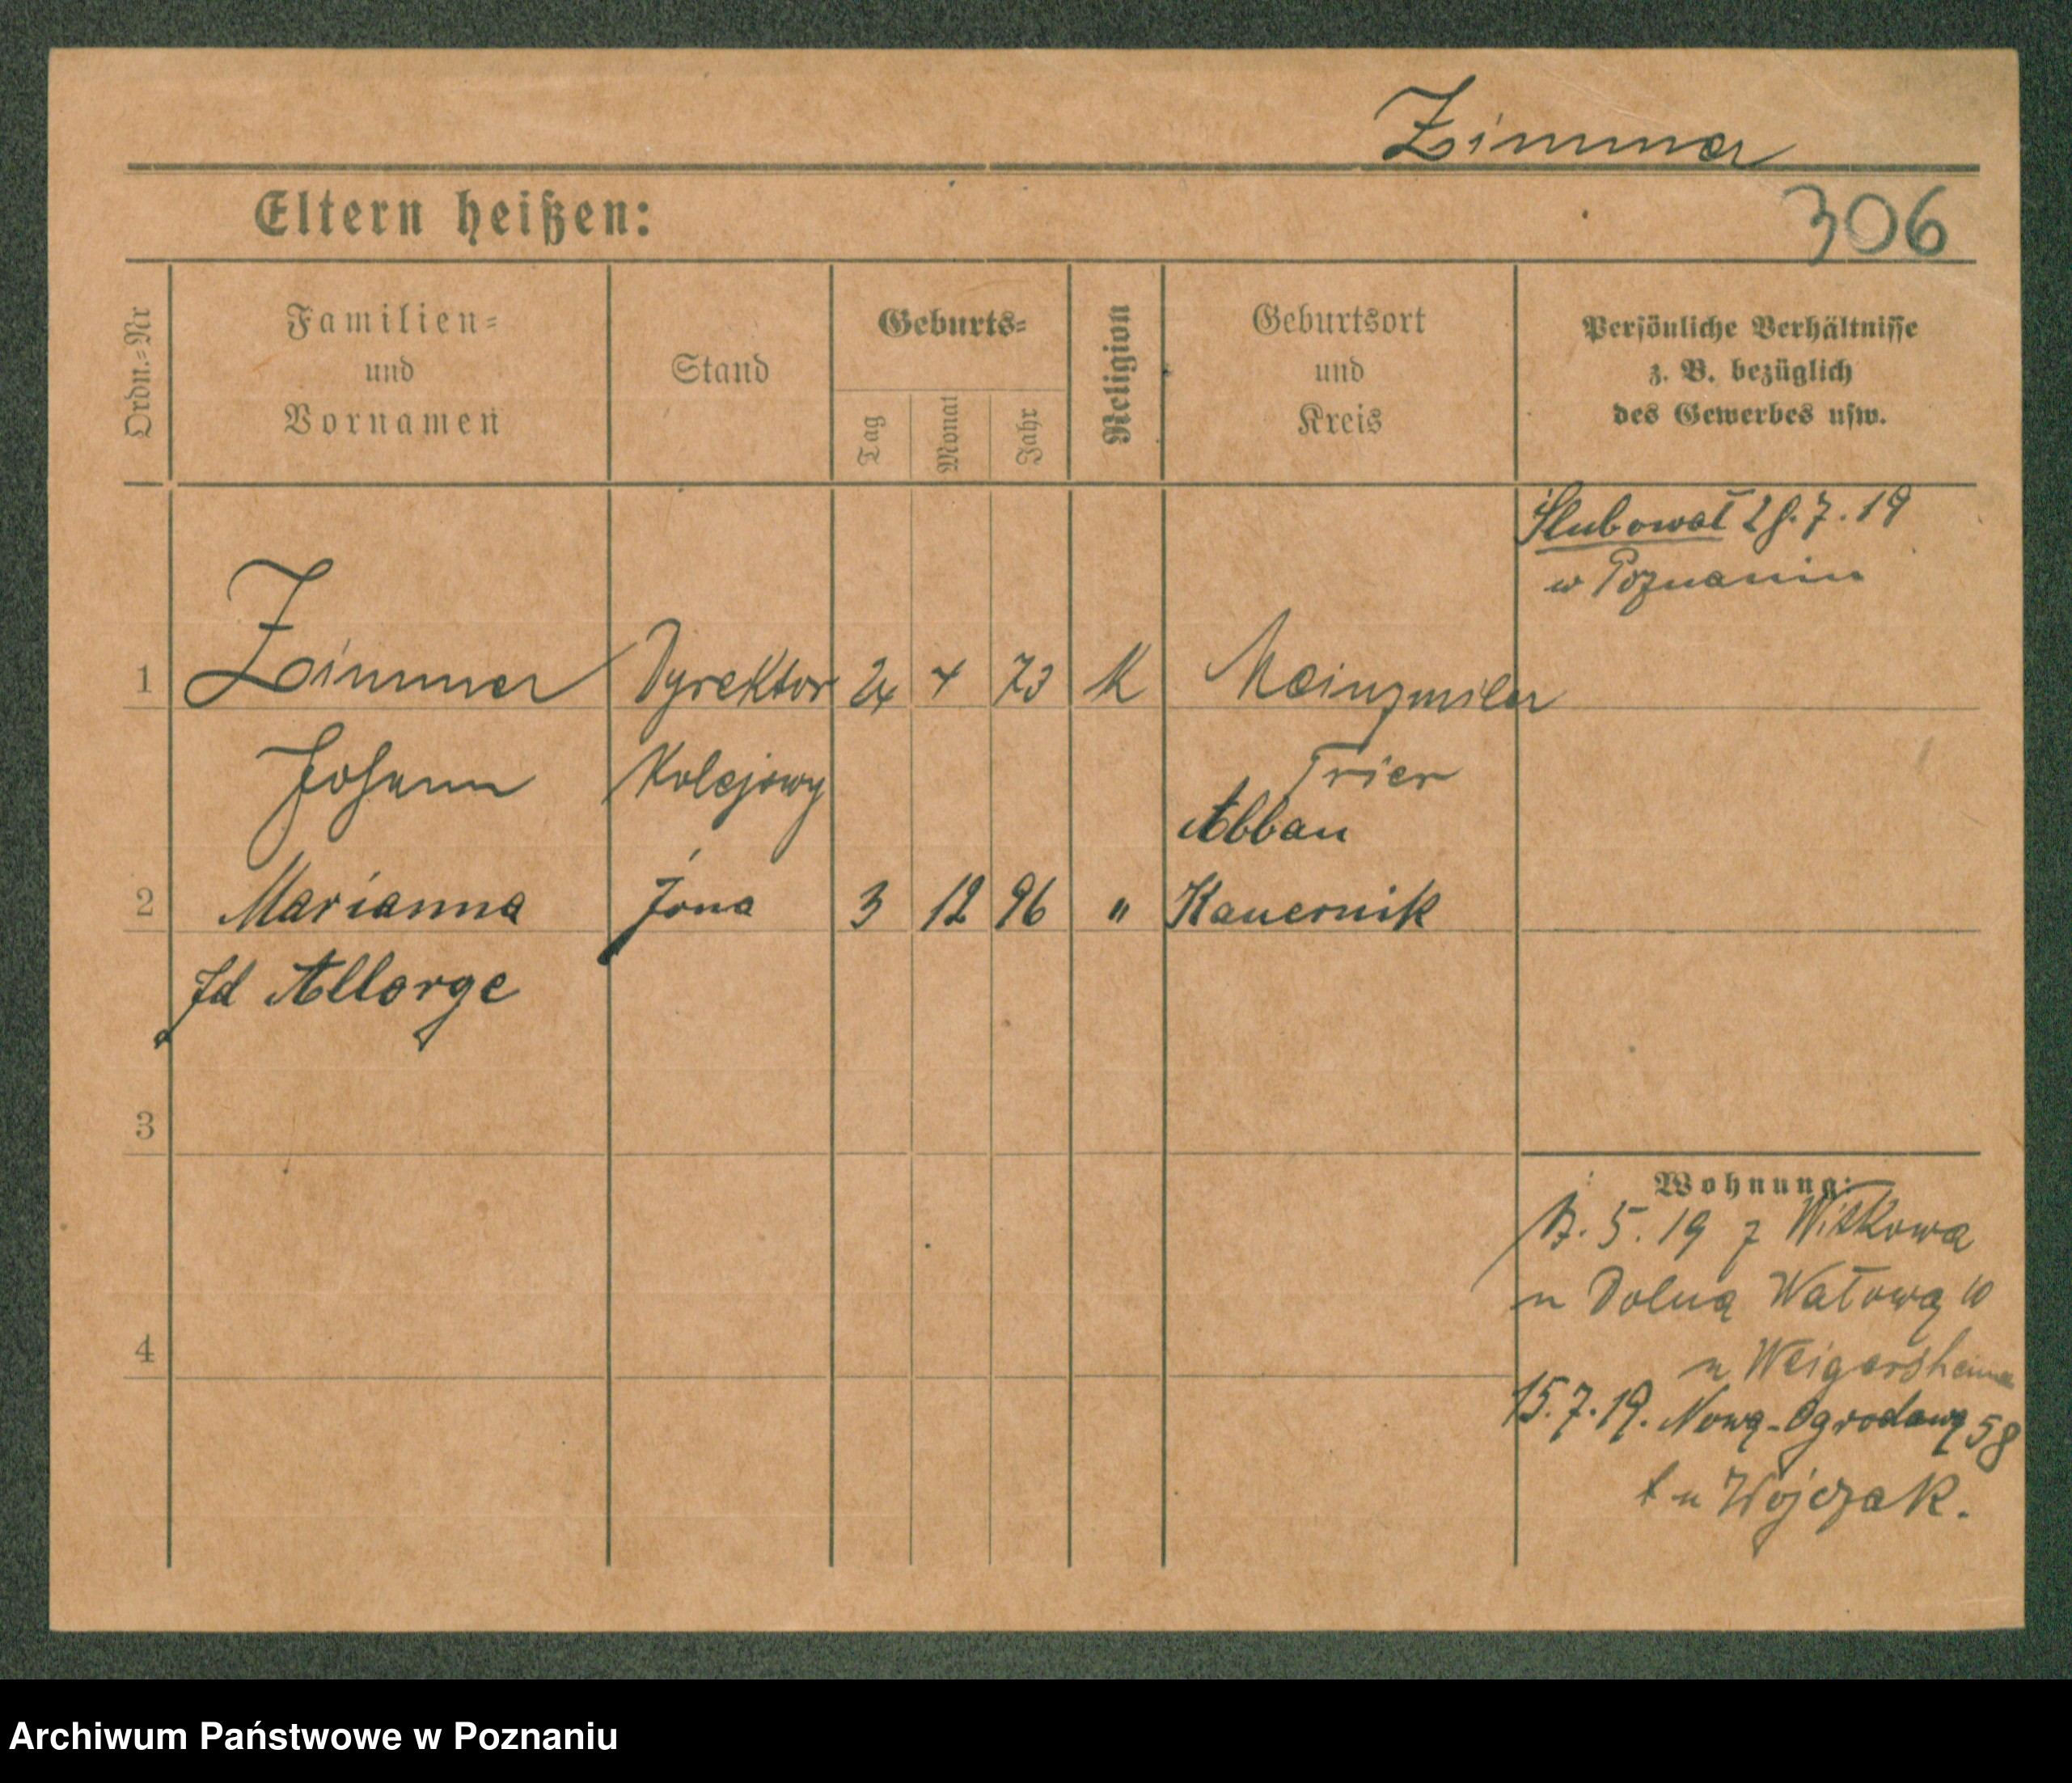 Zimmer
Eltern heißen:
306
Ordn.=Nr
Familien=
und
Vornamen
Stand
Geburts=
Tag
Monat
Jahr
Religion
Geburtsort
und
Kreis
Persönliche Verhältnisse
z. B. bezüglich
des Gewerbes usw.
Ślubował 28.7.19
w Poznaniu
1 Zimmer Dyrektor 24 4 73 K
Johann Kolejowy Trier
Abbau
2 Marianna żona 3 12 96 " Kauernik
zd Allorge
3
4
Wohnung:
5.19 z Witkowa
n Dolną Wałową 10
n Weigersheim
15.7.19. Nową-Ogrodową 58
n Wójczak.
Archiwum Państwowe w Poznaniu